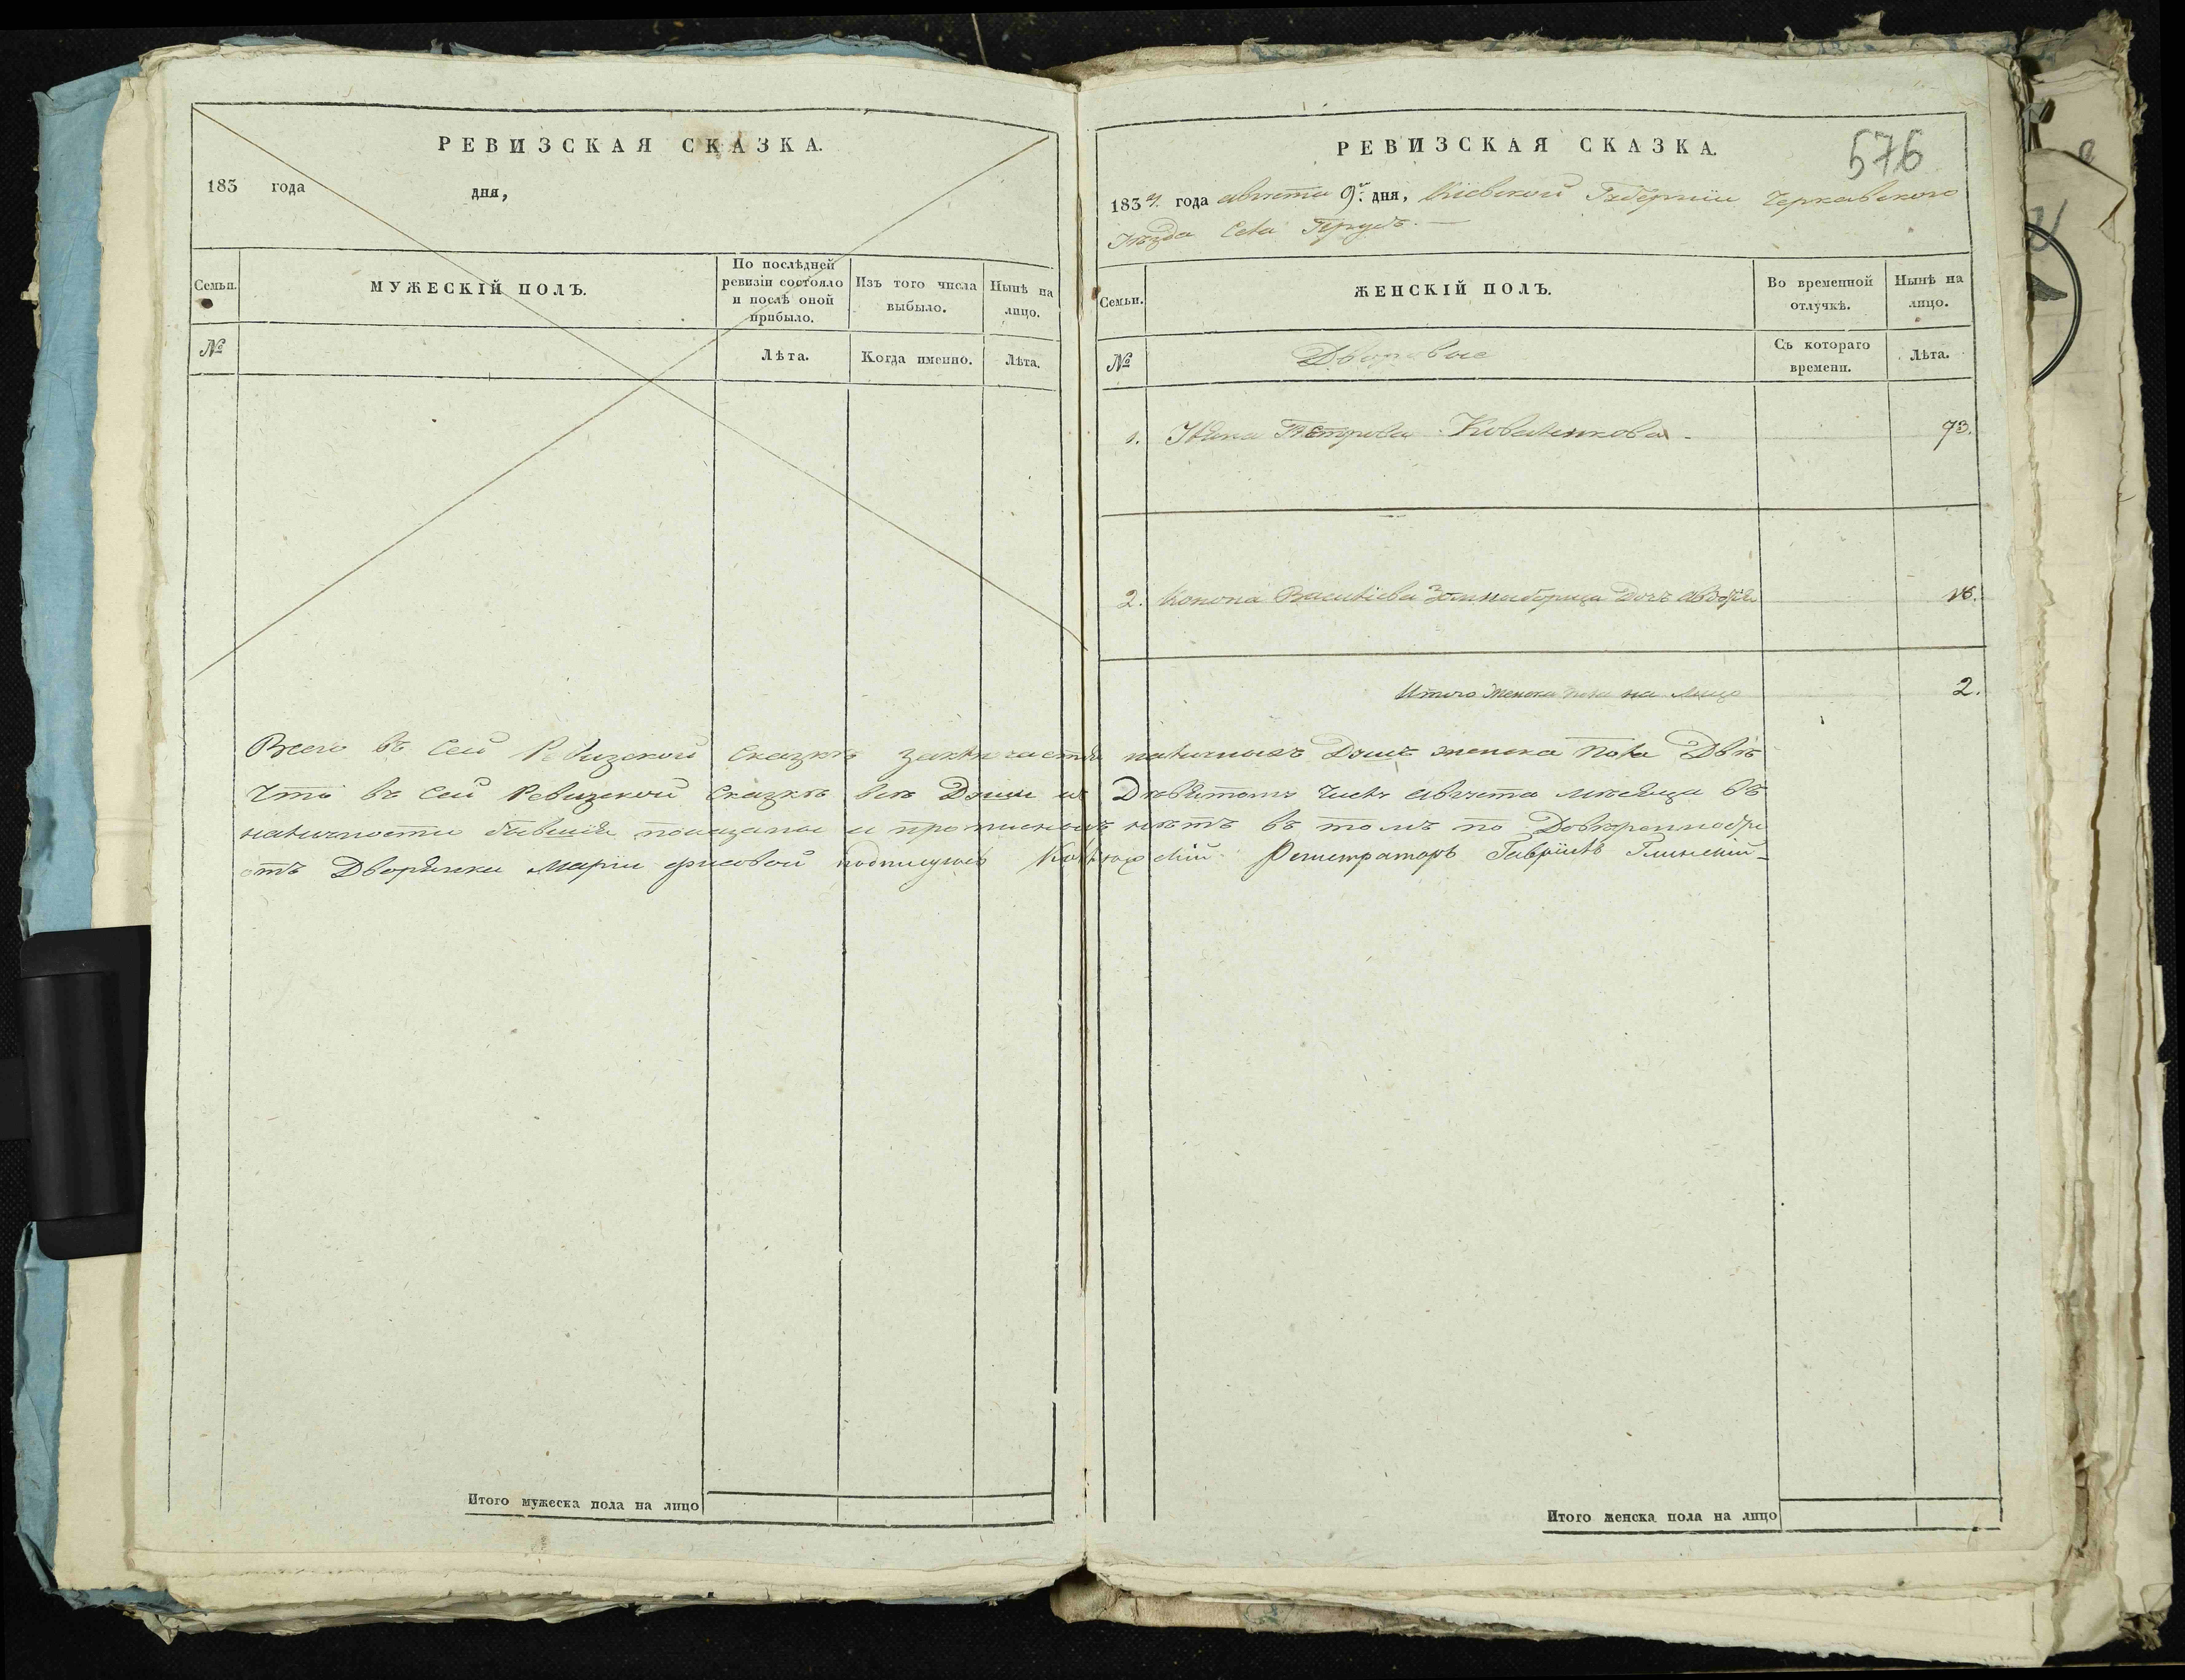 РЕВИЗСКАЯ СКАЗКА.
183 года дня,
Семьи.
МУЖЕСКІЙ ПОЛЪ.
По послѣдней
ревизіи состояло
и послѣ оной
прибыло.
Изъ того числа
выбыло.
Нынѣ на
лицо.
№
Лѣта.
Когда именно.
Лѣта.
РЕВИЗСКАЯ СКАЗКА.
576
183 года августа 9го дня, Кіевской Губерніи Черкавского
Уѣзда Села
Семьи.
ЖЕНСКІЙ ПОЛЪ.
Во временной
отлучкѣ.
Нынѣ на
лицо.
№
Дворовые
Съ котораго
времени.
Лѣта.
1. Петрова Коваленкова 73.
2. Конона Василіева Дочь Авдотія
Итого женска пола на лицо 2.
Всего въ сей Ревизской сказкѣ заключается наличныхъ Душъ женска пола Двѣ
Что въ сей Ревизской сказкѣ всѣ Души въ Девятомъ числѣ августа мѣсяца въ
наличности бывшія показаны и прописныхъ нѣтъ въ томъ по
отъ Дворянки Маріи подписуюсь Регистраторъ Гавріилъ Глинскій
Итого мужеска пола на лицо
Итого женска пола на лицо